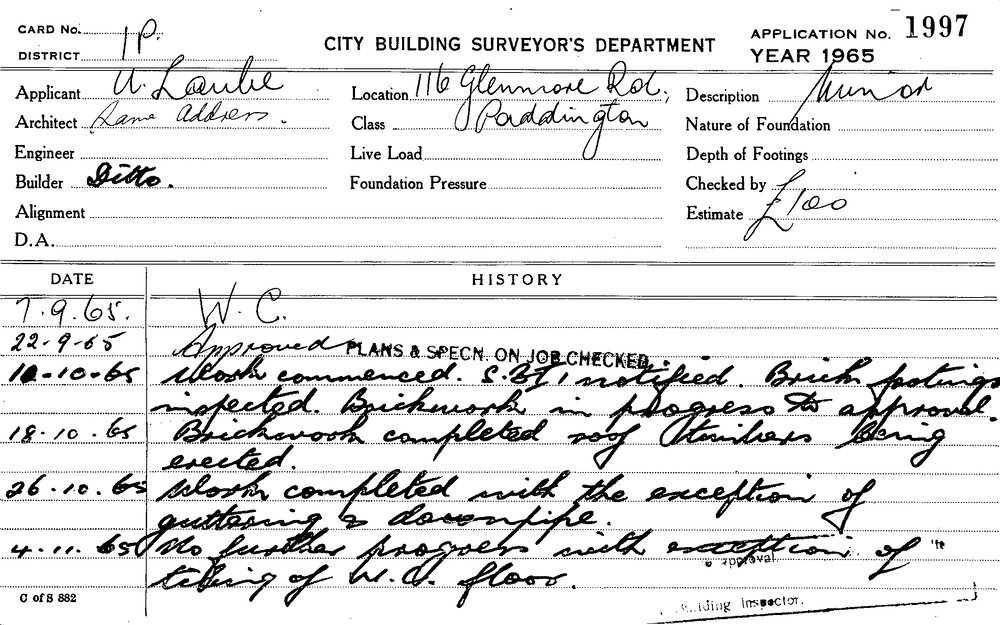 CARD No.
DISTRICT 1P.
CITY BUILDING SURVEYOR'S DEPARTMENT
APPLICATION No. 1997
YEAR 1965
Applicant U. Laube
Location 116 Glenmore Rd,
Description Minor
Architect Same Address.
Class Paddington
Nature of Foundation
Engineer
Live Load
Depth of Footings
Builder Ditto.
Foundation Pressure
Checked by
Alignment
Estimate £100
D.A.
DATE HISTORY
7.9.65. W.C.
22-9-65 Approved PLANS & SPECN. ON JOB CHECKED
10-10-65 Work commenced. S.B.I. notified. Brick footings
inspected. Brickwork in progress to approval.
18.10.65 Brickwork completed roof timbers being
erected.
26.10.65 Work completed with the exception of
guttering & downpipe.
4.11.65 No further progress with exception of
tiling of W.C. floor.
approval.
Building Inspector.
C of S 882